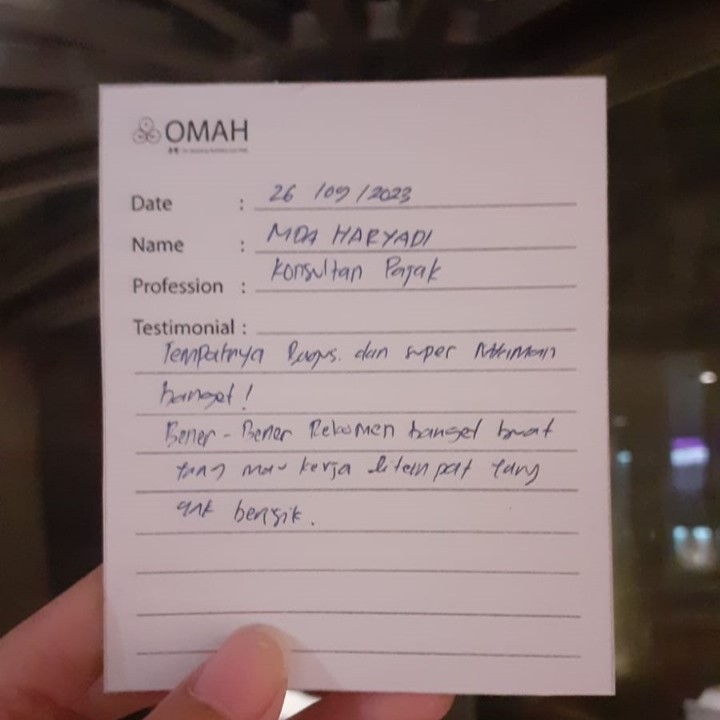 OMAH
Date : 26/09/2023
Name : MDA HARYADI
Profession : Konsultan Pajak
Testimonial :
Tempatnya Bagus. dan super
banget!
Bener-Bener Rekomen banget buat
yang mau kerja ditempat yang
gak bersik.